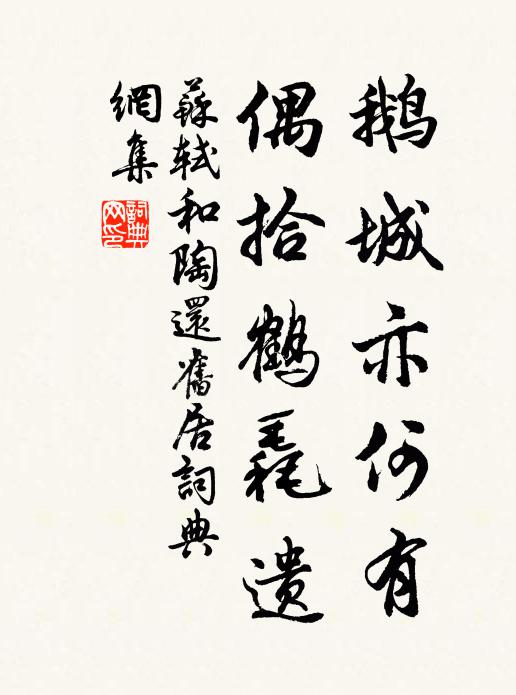 鹅城亦何有
偶拾鹤毳遗
蘇軾和陶還舊居詞典
網集
詞典网印